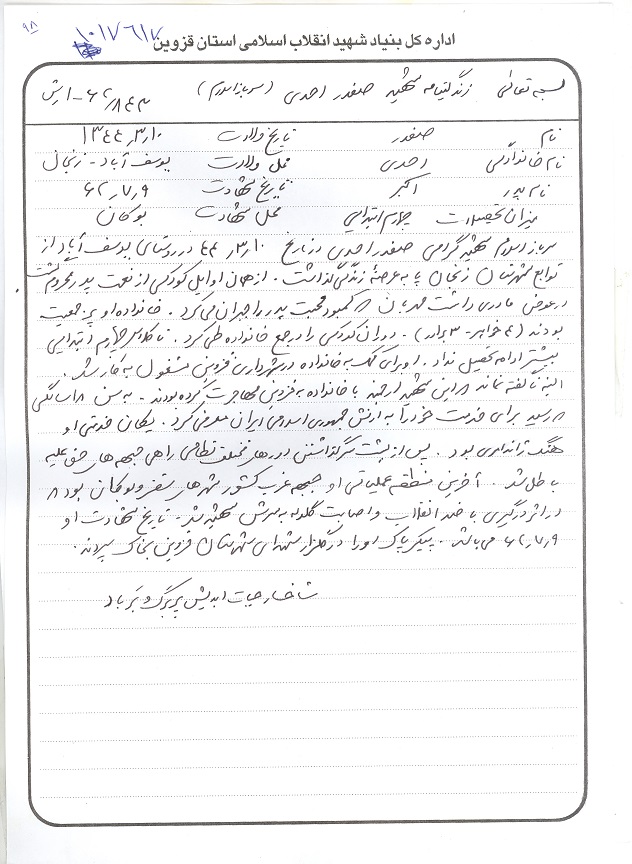 ۹۸
۱۰۱۷۶۱۷
اداره کل بنیاد شهید انقلاب اسلامی استان قزوین
بسمه تعالی زندگینامه شهید صفدر احدی (سرباز اسلام) ۶۲٫۸۴۳-ارتش
نام صفدر تاریخ ولادت ۱۳۴۴٫۳٫۱۰
نام خانوادگی احدی محل ولادت یوسف آباد - زنجان
نام پدر اکبر تاریخ شهادت ۶۲٫۷٫۹
میزان تحصیلات چهارم ابتدایی محل شهادت بوکان
سرباز اسلام شهید گرامی صفدر احدی در تاریخ ۴۴٫۳٫۱۰ در روستای یوسف آباد از
توابع شهرستان زنجان پا به عرصه زندگی گذاشت. از همان اوایل کودکی از نعمت پدر محروم گشت.
در عوض مادری داشت مهربان که کمبود محبت پدر را جبران می‌کرد. خانواده او پرجمعیت
بودند (۴ خواهر - ۳ برادر). دوران کودکی را در جمع خانواده طی کرد. تا کلاس چهارم ابتدایی
بیشتر ادامه تحصیل نداد. او برای کمک به خانواده در شهرداری قزوین مشغول به کار شد.
البته ناگفته نماند که این شهید ارجمند با خانواده به قزوین مهاجرت کرده بودند. به سن ۱۸ سالگی
که رسید برای خدمت خود را به ارتش جمهوری اسلامی ایران معرفی کرد. یگان خدمتی او
هنگ ژاندارمری بود. پس از پشت سر گذاشتن دوره‌های مختلف نظامی راهی جبهه‌های حق علیه
باطل شد. آخرین منطقه عملیاتی او جبهه غرب کشور شهرهای سقز و بوکان بود که
در اثر درگیری با ضد انقلاب و اصابت گلوله به سرش شهید شد. تاریخ شهادت او
۶۲٫۷٫۹ می‌باشد. پیکر پاک او را در گلزار شهدای شهرستان قزوین بخاک سپردند.
شاخسار حیات ابدیش پر برگ و بر باد